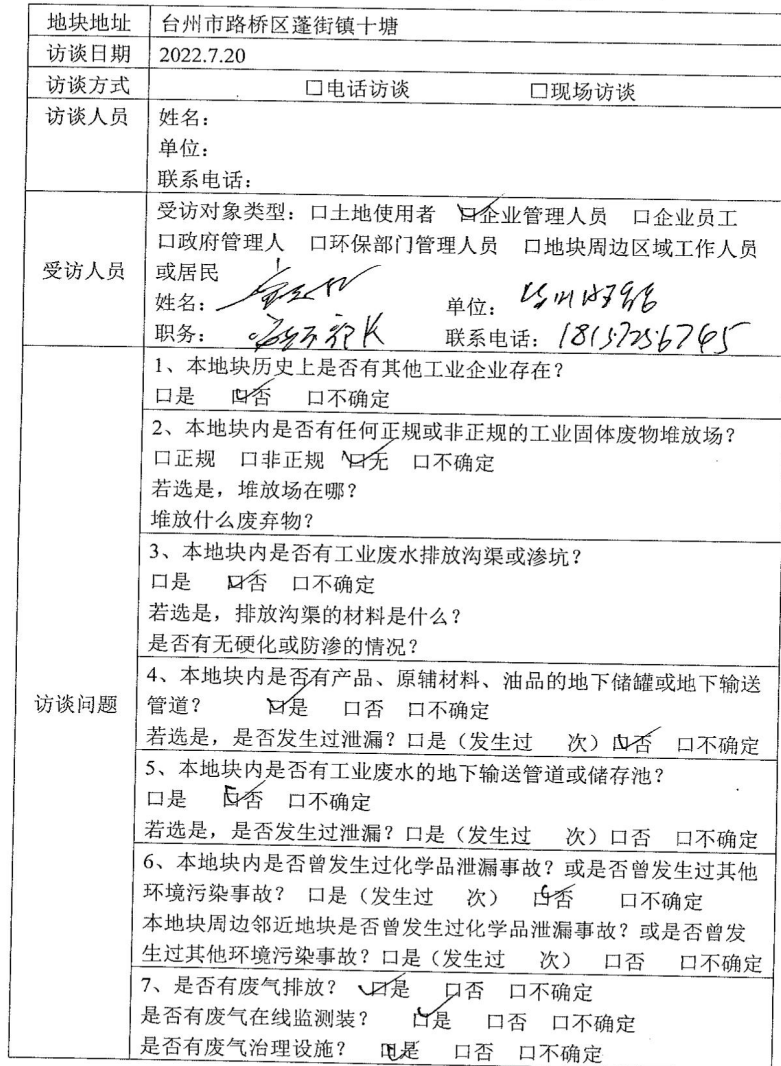 地块地址 台州市路桥区蓬街镇十塘
访谈日期 2022.7.20
访谈方式 口电话访谈 口现场访谈
访谈人员 姓名：
单位：
联系电话：
受访人员 受访对象类型：口土地使用者 口企业管理人员 口企业员工
口政府管理人 口环保部门管理人员 口地块周边区域工作人员
或居民
姓名： 单位：
职务： 联系电话：
访谈问题
1、本地块历史上是否有其他工业企业存在？
口是 口否 口不确定
2、本地块内是否有任何正规或非正规的工业固体废物堆放场？
口正规 口非正规 口无 口不确定
若选是，堆放场在哪？
堆放什么废弃物？
3、本地块内是否有工业废水排放沟渠或渗坑？
口是 口否 口不确定
若选是，排放沟渠的材料是什么？
是否有无硬化或防渗的情况？
4、本地块内是否有产品、原辅材料、油品的地下储罐或地下输送
管道？ 口是 口否 口不确定
若选是，是否发生过泄漏？口是（发生过 次）口否 口不确定
5、本地块内是否有工业废水的地下输送管道或储存池？
口是 口否 口不确定
若选是，是否发生过泄漏？口是（发生过 次）口否 口不确定
6、本地块内是否曾发生过化学品泄漏事故？或是否曾发生过其他
环境污染事故？ 口是（发生过 次） 口否 口不确定
本地块周边邻近地块是否曾发生过化学品泄漏事故？或是否曾发
生过其他环境污染事故？口是（发生过 次） 口否 口不确定
7、是否有废气排放？ 口是 口否 口不确定
是否有废气在线监测装？ 口是 口否 口不确定
是否有废气治理设施？ 口是 口否 口不确定